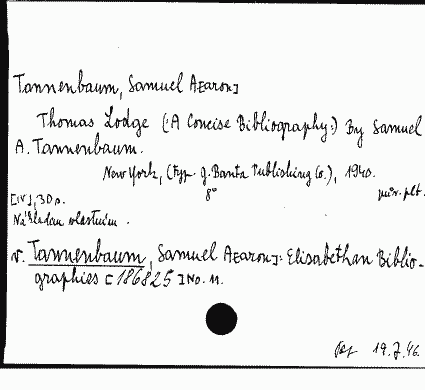 Tannenbaum, Samuel A[aron]
Thomas Lodge (:A Concise Bibliography:) By Samuel
A. Tannenbaum.
New York, (typ. G. Banta Publishing Co.), 1940.
8° pův. plt.
[IV], 30 p.
Nákladem vlastním.
v. Tannenbaum, Samuel A[aron]: Elisabethan Biblio-
graphies [186825] No. 11.
19.7.46.